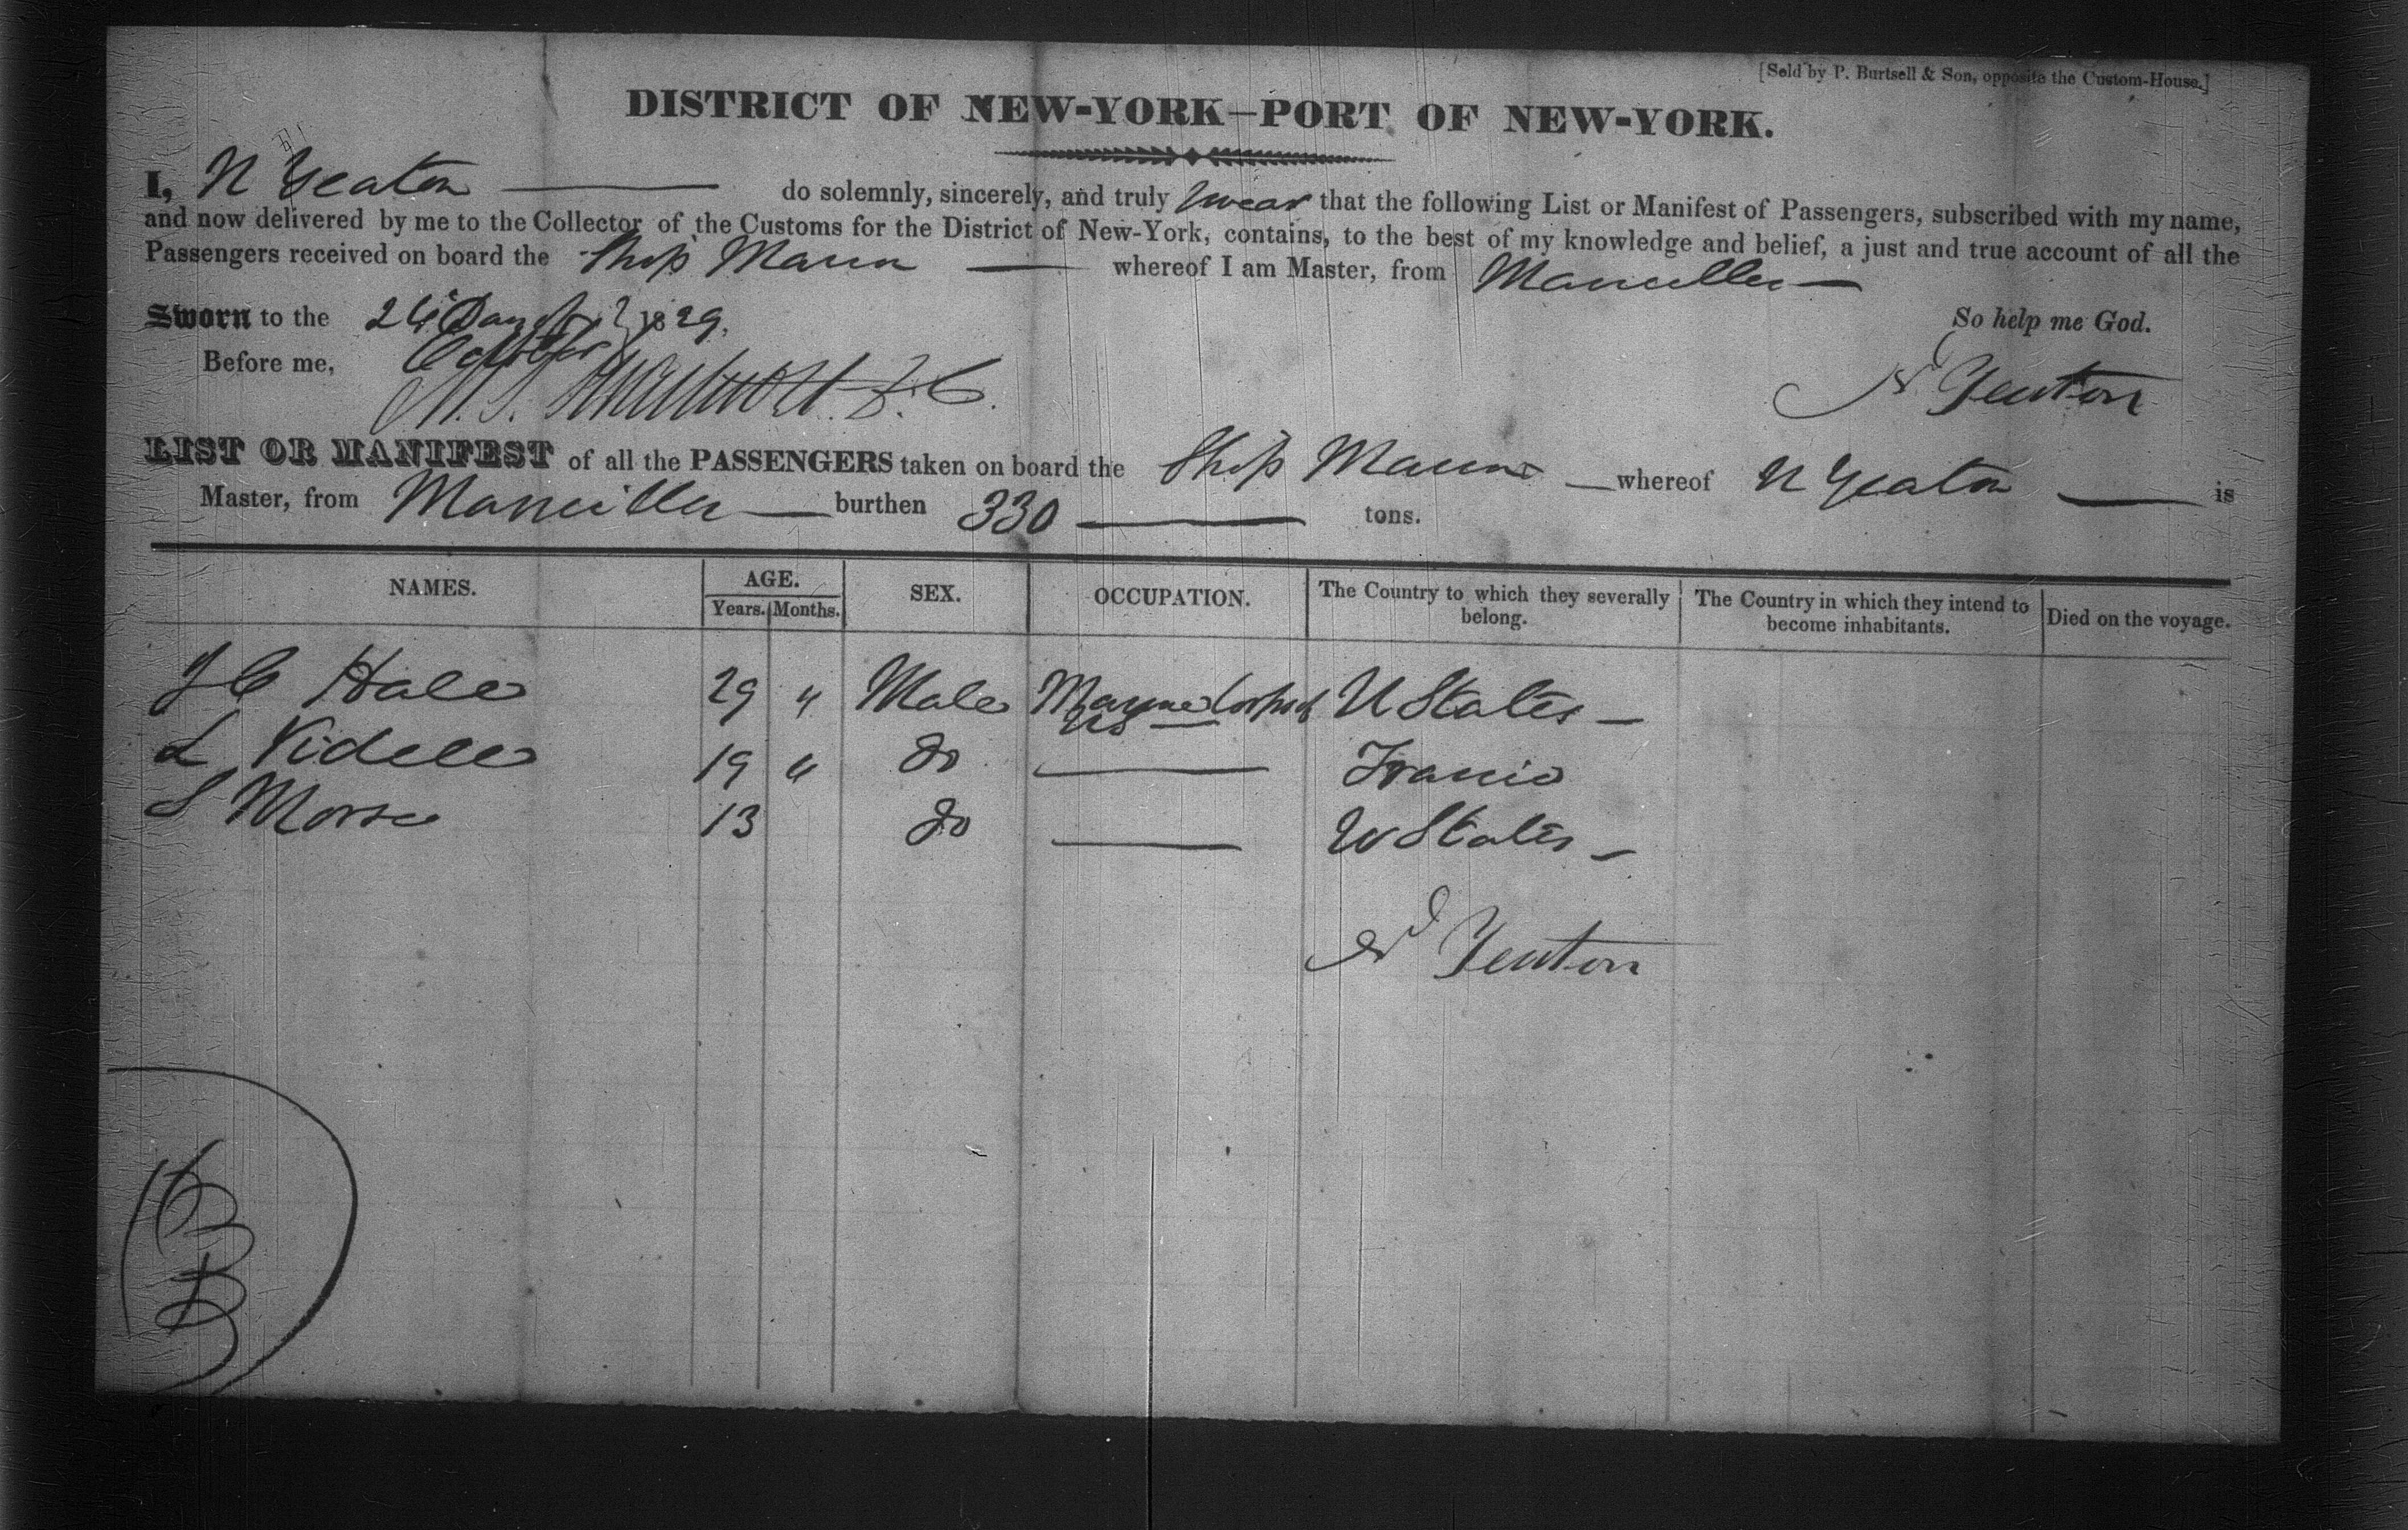 [Sold by P. Burtsell & Son, opposite the Custom-House.]
DISTRICT OF NEW-YORK—PORT OF NEW-YORK.
I, N Yeaton do solemnly, sincerely, and truly swear that the following List or Manifest of Passengers, subscribed with my name,
and now delivered by me to the Collector of the Customs for the District of New-York, contains, to the best of my knowledge and belief, a just and true account of all the
Passengers received on board the Ship whereof I am Master, from Marseilles
Sworn to the 26 Day of 1829. So help me God.
October
Before me, N Yeaton
LIST OR MANIFEST of all the PASSENGERS taken on board the Ship whereof N Yeaton is
Master, from Marseilles burthen 330 tons.
NAMES. AGE. SEX. OCCUPATION. The Country to which they severally belong. The Country in which they intend to become inhabitants. Died on the voyage.
Years. Months.
J C Hale 29 " Male Marine Corps U States
US
L Videll 19 " do France
S Morse 13 do U States
N Yeaton